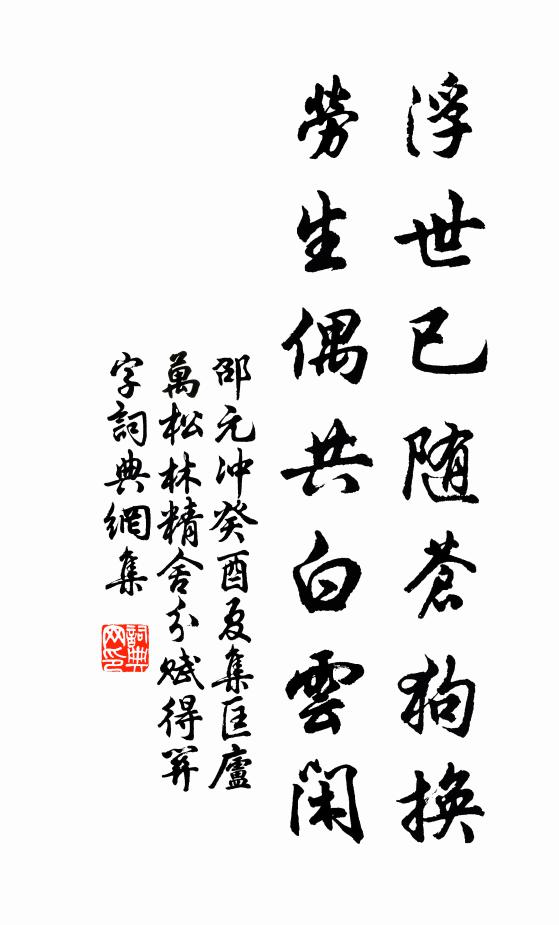 浮世已随蒼狗換
勞生偶共白雲閑
邵元冲癸酉夏集匡廬
萬松林精舍分賦得舁
字詞典網集
詞典网印